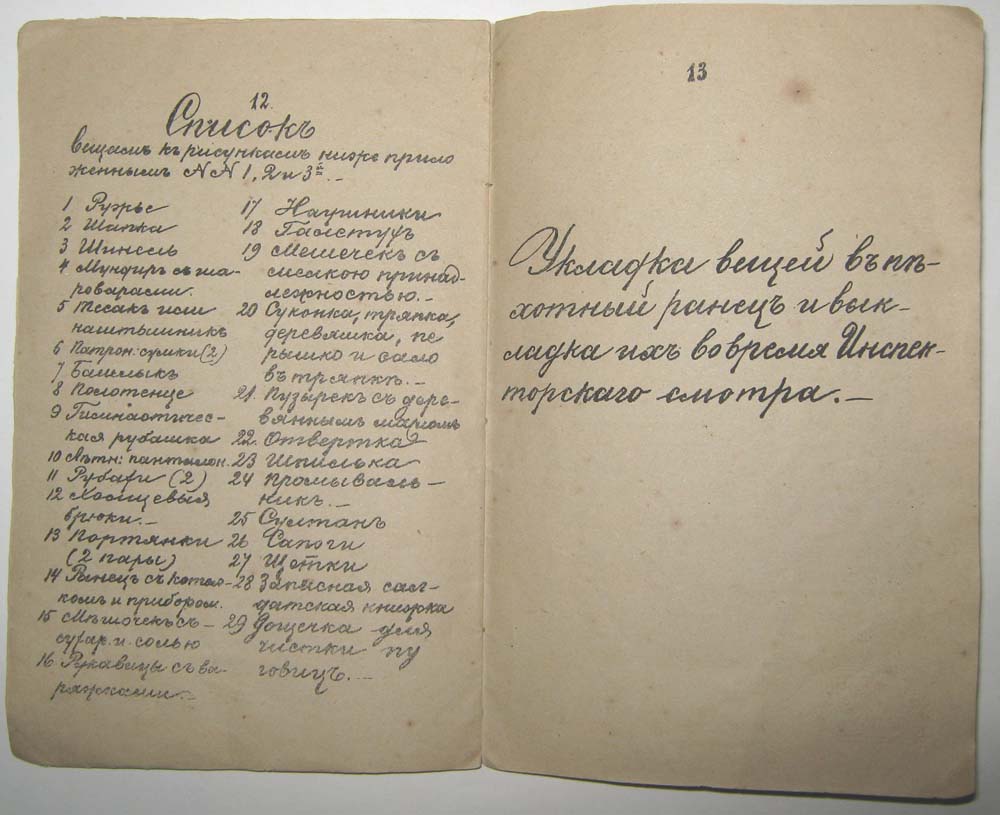 12.
Списокъ
вещамъ къ рисункамъ ниже прило
женнымъ NN 1, 2 и 3й. —
1 Ружье
2 Шапка
3 Шинель
4 Мундиръ съ ша-
роварами.
5 Тесакъ или
наштышникъ
6 Патрон: сумки (2)
7 Башлыкъ
8 Полотенце
9 Гимнастичес-
кая рубашка
10 Лѣтн: панталон.
11 Рубахи (2)
12 Холщевыя
брюки. —
13 Портянки
(2 пары)
14 Ранецъ съ котел-
комъ и прибором.
15 Мѣшочекъ съ —
сухар. и. солью
16 Рукавицы съ ва-
ряжками —
17 Наушники
18 Галстухъ
19 Мешечекъ съ
мелкою принад-
лежностью. —
20 Суконка, тряпка,
деревяшка, пе
рышко и сало
въ тряпкѣ. —
21. Пузырекъ съ дере-
вяннымъ масломъ
22. Отвертка
23 Шпилька
24 Промываль —
никъ. —
25 Султанъ
26 Сапоги
27 Щетки
28 Записная сол-
датская книжка
29 Дощечка для
чистки пу
говицъ. —
13
Укладка вещей въ пѣ-
хотный ранецъ и вык-
ладка ихъ во время Инспек-
торскаго смотра. —